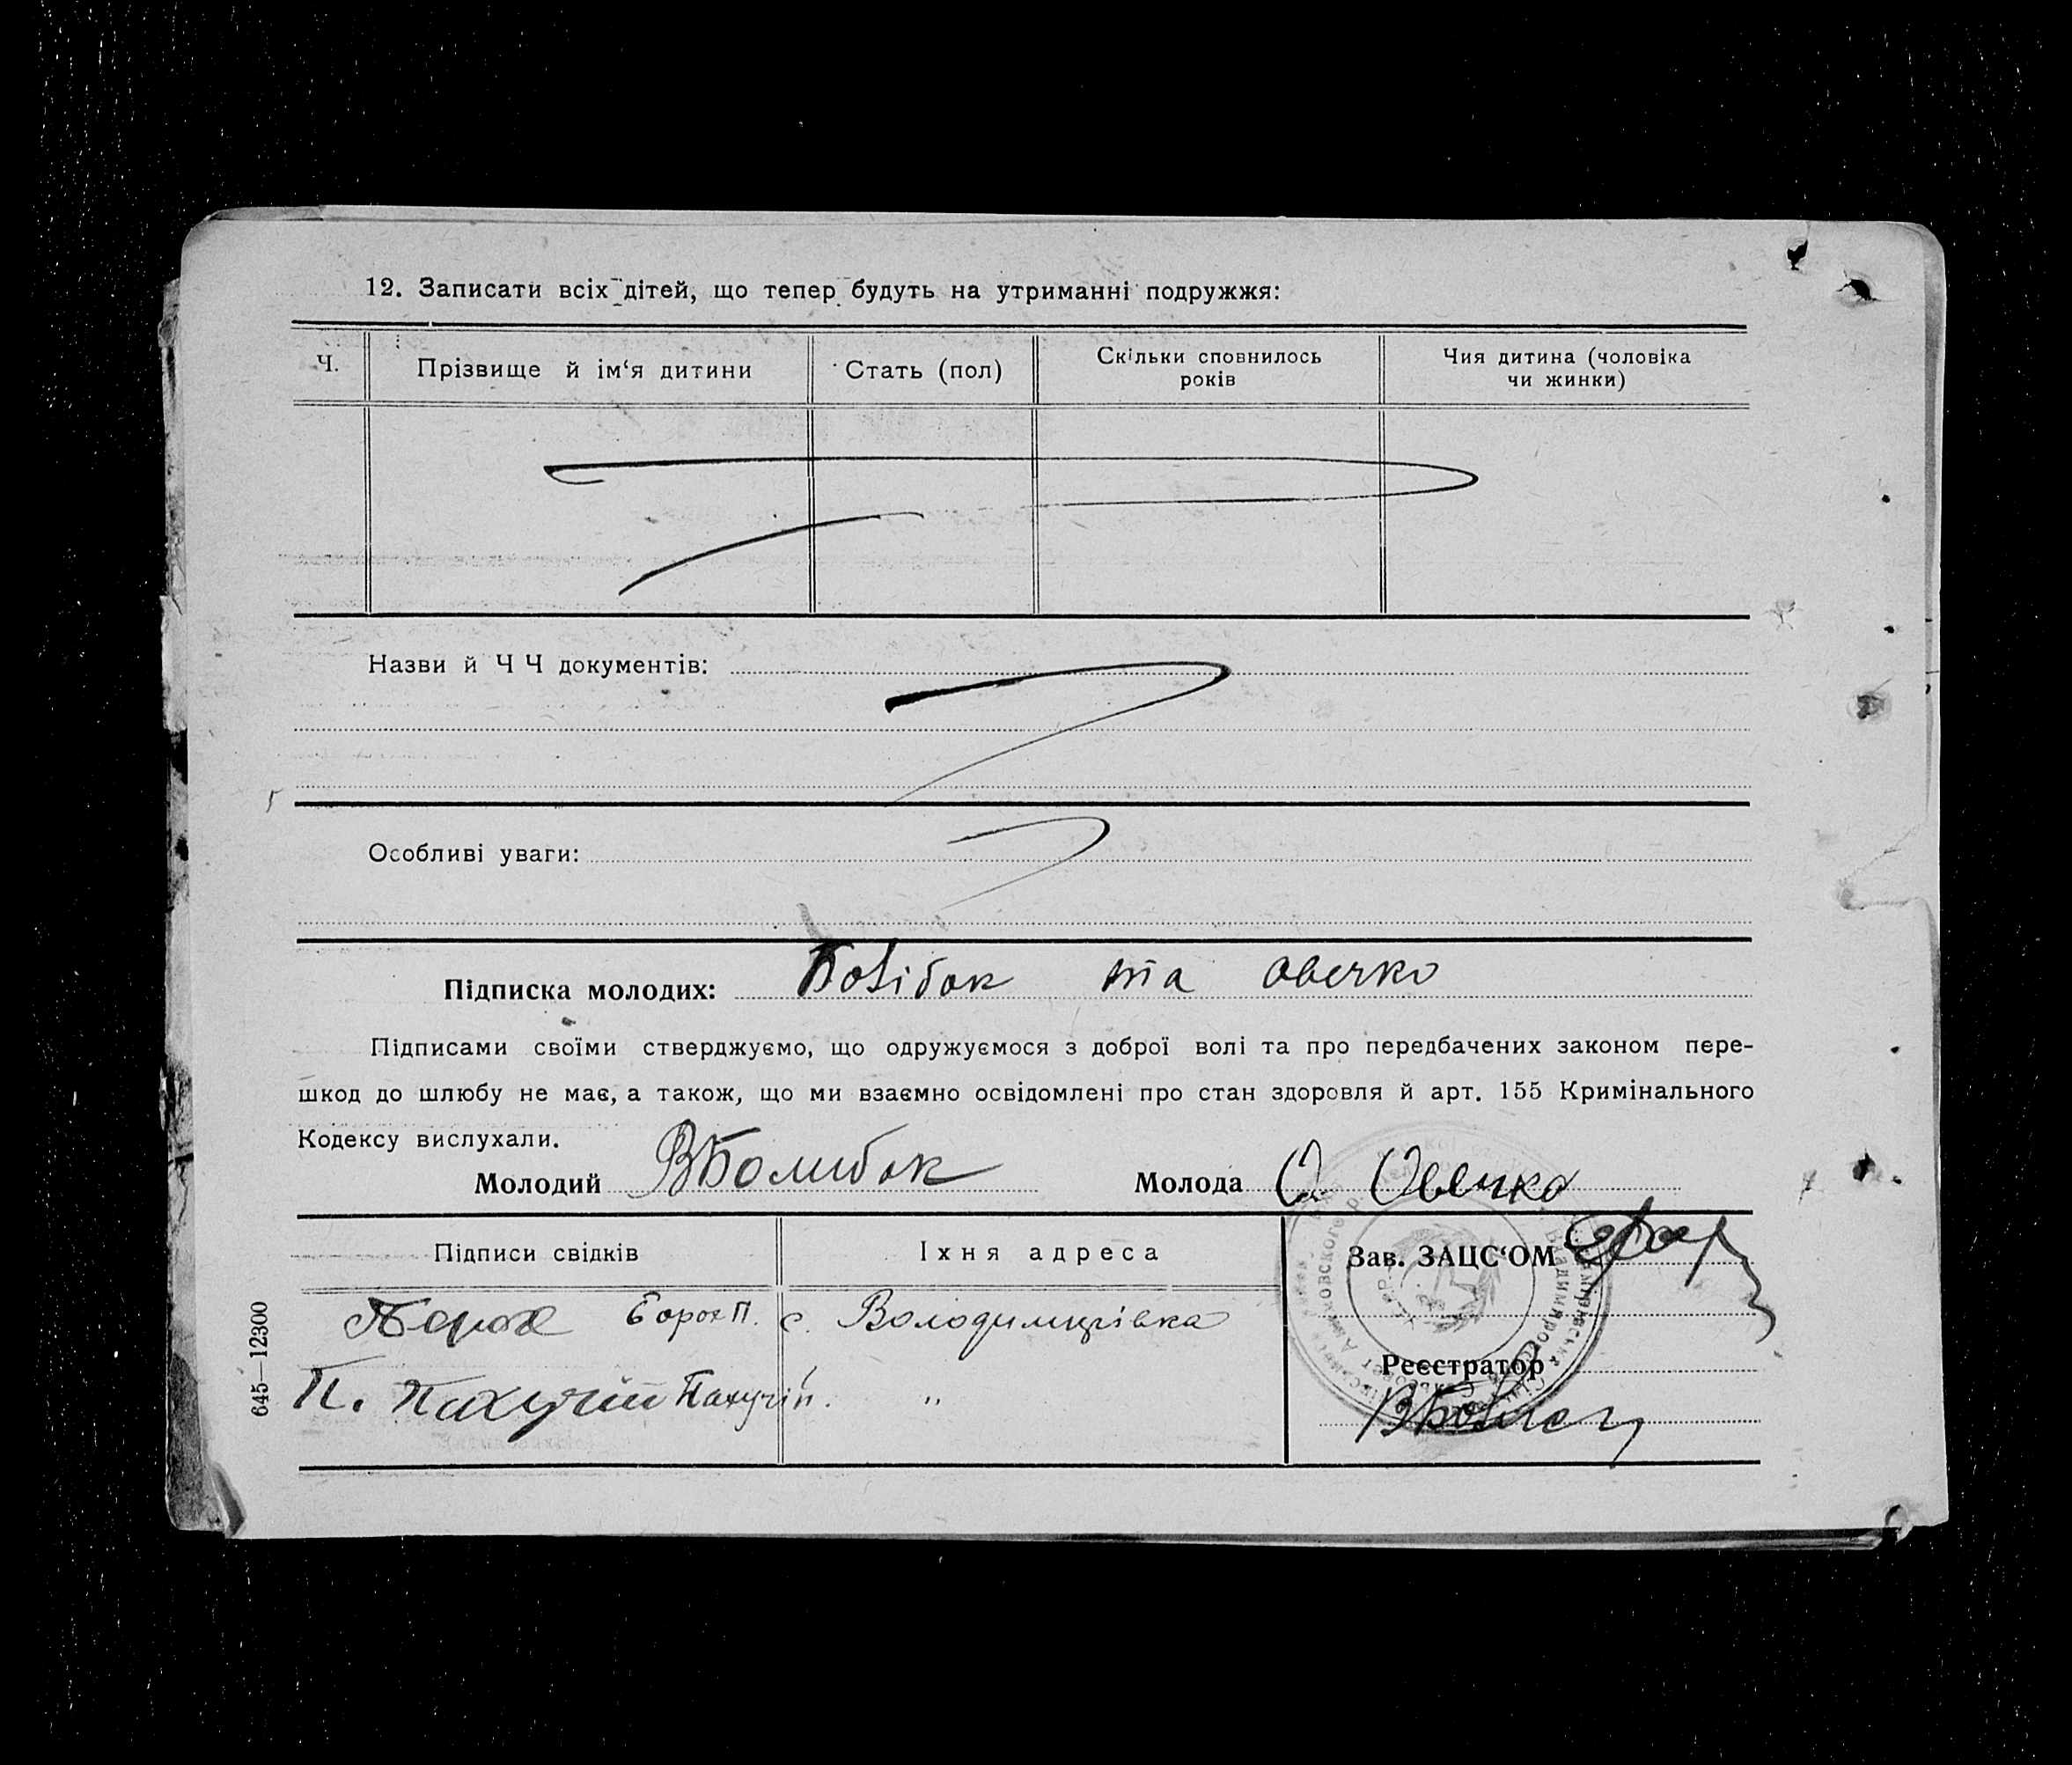 12. Записати всіх дітей, що тепер будуть на утриманні подружжя:
Ч.
Прізвище й ім‘я дитини
Стать (пол)
Скільки сповнилось
років
Чия дитина (чоловіка
чи жинки)
Назви й Ч Ч документів:
Особливі уваги:
Підписка молодих: та Овечко
Підписами своїми стверджуємо, що одружуємося з доброї волі та про передбачених законом пере-
шкод до шлюбу не має, а також, що ми взаємно освідомлені про стан здоровля й арт. 155 Кримінального
Кодексу вислухали.
Молодий ВБолибок Молода О Овечко
Підписи свідків
Їхня адреса
Зав. ЗАЦС‘ОМ
Борох П. с. Володимирівка
П. Пахучій Пахучій. "
Реєстратор
645—12300